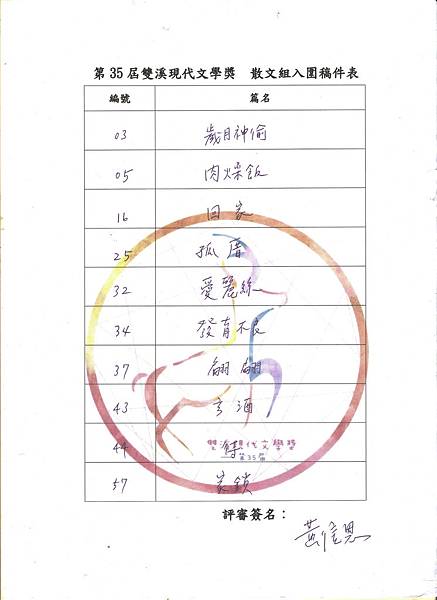 第35屆雙溪現代文學獎 散文組入圍稿件表
編號 篇名
03 歲月神偷
05 肉燥飯
16 回家
25 孤膤
32 愛麗絲
34 發育不良
37 翩翩
43 玄酒
44
57 家鎖
雙溪現代文學獎
第35屆
評審簽名：